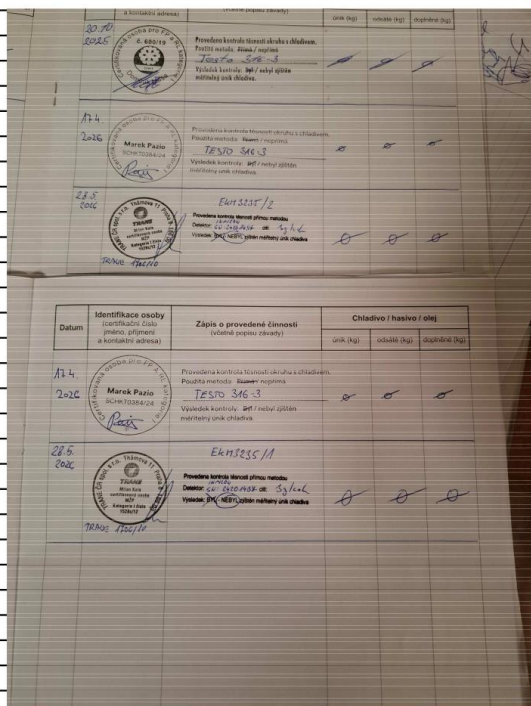 a kontaktní adresa)
(včetně popisu závady)
únik (kg)
odsáté (kg)
doplněné (kg)
20.10
2025
Certifikovaná osoba pro FP a RL kategorie I
č. 600/19
Provedena kontrola těsnosti okruhu s chladivem.
Použitá metoda: Přímá / nepřímá
Testo 316-3
Výsledek kontroly: Byl / nebyl zjištěn
měřitelný únik chladiva.
17.4.
2026
Certifikovaná osoba pro FP a RL kategorie I
Marek Pazio
SCHKT0384/24
Provedena kontrola těsnosti okruhu s chladivem.
Použitá metoda: Přímá / nepřímá
TESTO 316-3
Výsledek kontroly: Byl / nebyl zjištěn
měřitelný únik chladiva.
ø ø ø
28.5.
2026
TRANE ČR spol. s r.o. Thámova 11, Praha 8
TRANE
Milan Kala
certifikovaná osoba
MŽP
Kategorie I čísla
1528a/12
TRANE 1706/10
EKM3235/2
Provedena kontrola těsnosti přímou metodou
Detektor: citl:
Výsledek: BYL / NEBYL zjištěn měřitelný únik chladiva
ø ø ø
Datum
Identifikace osoby
(certifikační číslo
jméno, příjmení
a kontaktní adresa)
Zápis o provedené činnosti
(včetně popisu závady)
Chladivo / hasivo / olej
únik (kg)
odsáté (kg)
doplněné (kg)
17.4.
2026
Certifikovaná osoba pro FP a RL kategorie I
Marek Pazio
SCHKT0384/24
Provedena kontrola těsnosti okruhu s chladivem.
Použitá metoda: Přímá / nepřímá
TESTO 316-3
Výsledek kontroly: Byl / nebyl zjištěn
měřitelný únik chladiva.
ø ø ø
28.5.
2026
TRANE ČR spol. s r.o. Thámova 11, Praha 8
TRANE
Milan Kala
certifikovaná osoba
MŽP
Kategorie I čísla
1528a/12
TRANE 1706/10
EKM3235/1
Provedena kontrola těsnosti přímou metodou
Detektor: citl: 3g/rok
Výsledek: BYL / NEBYL zjištěn měřitelný únik chladiva
ø ø ø